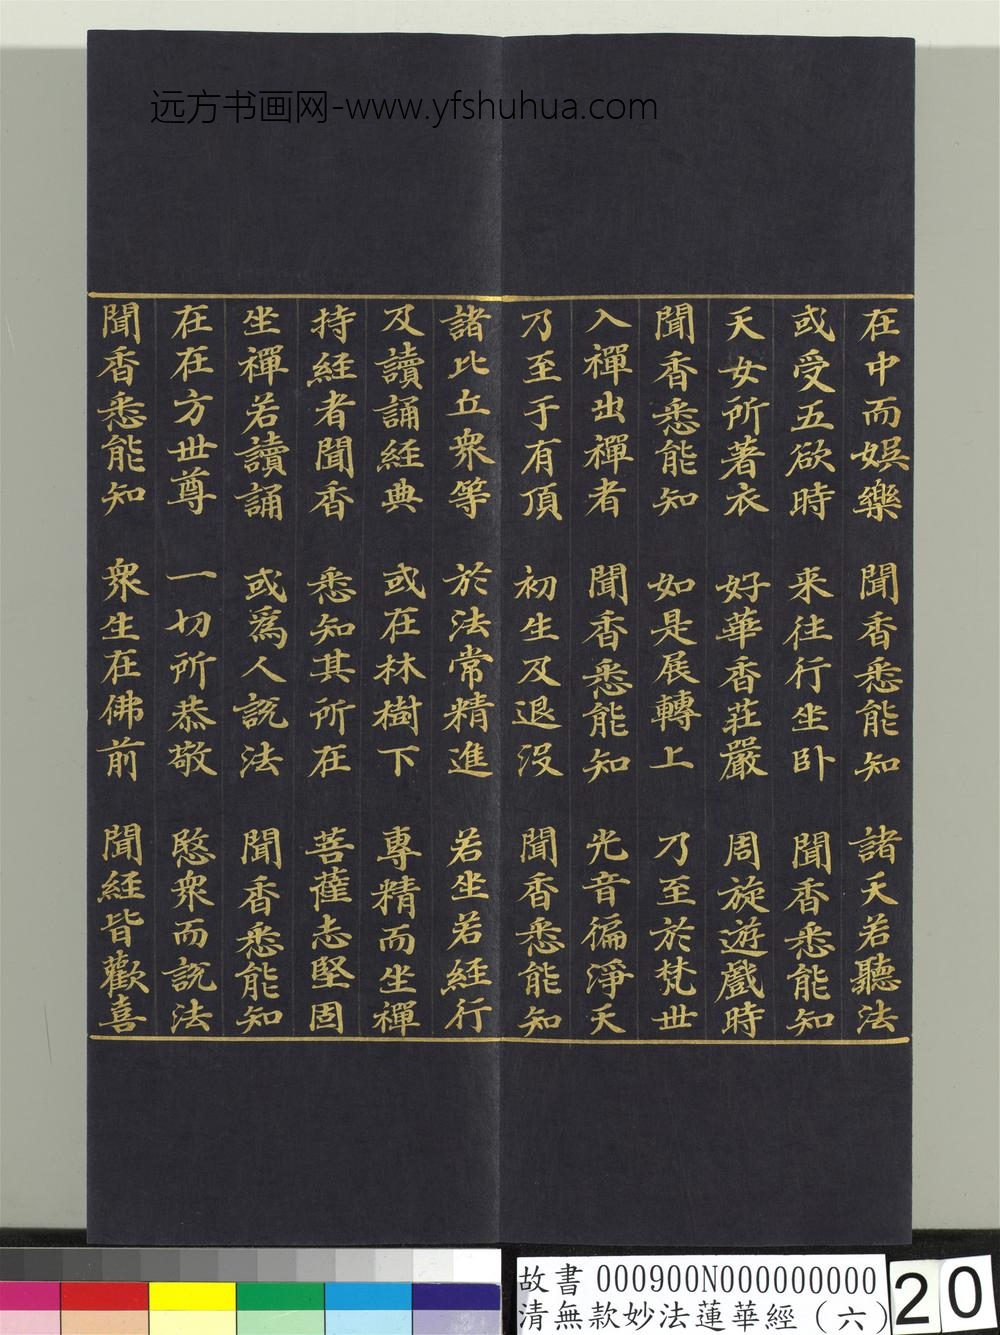 远方书画网-www.yfshuhua.com
在中而娯樂 聞香悉能知 諸天若聽法
或受五欲時 来往行坐卧 聞香悉能知
天女所著衣 好華香莊嚴 周旋遊戲時
聞香悉能知 如是展轉上 乃至於梵世
入禪出禪者 聞香悉能知 光音徧淨天
乃至于有頂 初生及退没 聞香悉能知
諸比丘衆等 於法常精進 若坐若經行
及讀誦經典 或在林樹下 專精而坐禪
持經者聞香 悉知其所在 菩薩志堅固
坐禪若讀誦 或爲人説法 聞香悉能知
在在方世尊 一切所恭敬 愍衆而説法
聞香悉能知 衆生在佛前 聞經皆歡喜
故書 000900N000000000
清無款妙法蓮華經（六）
20